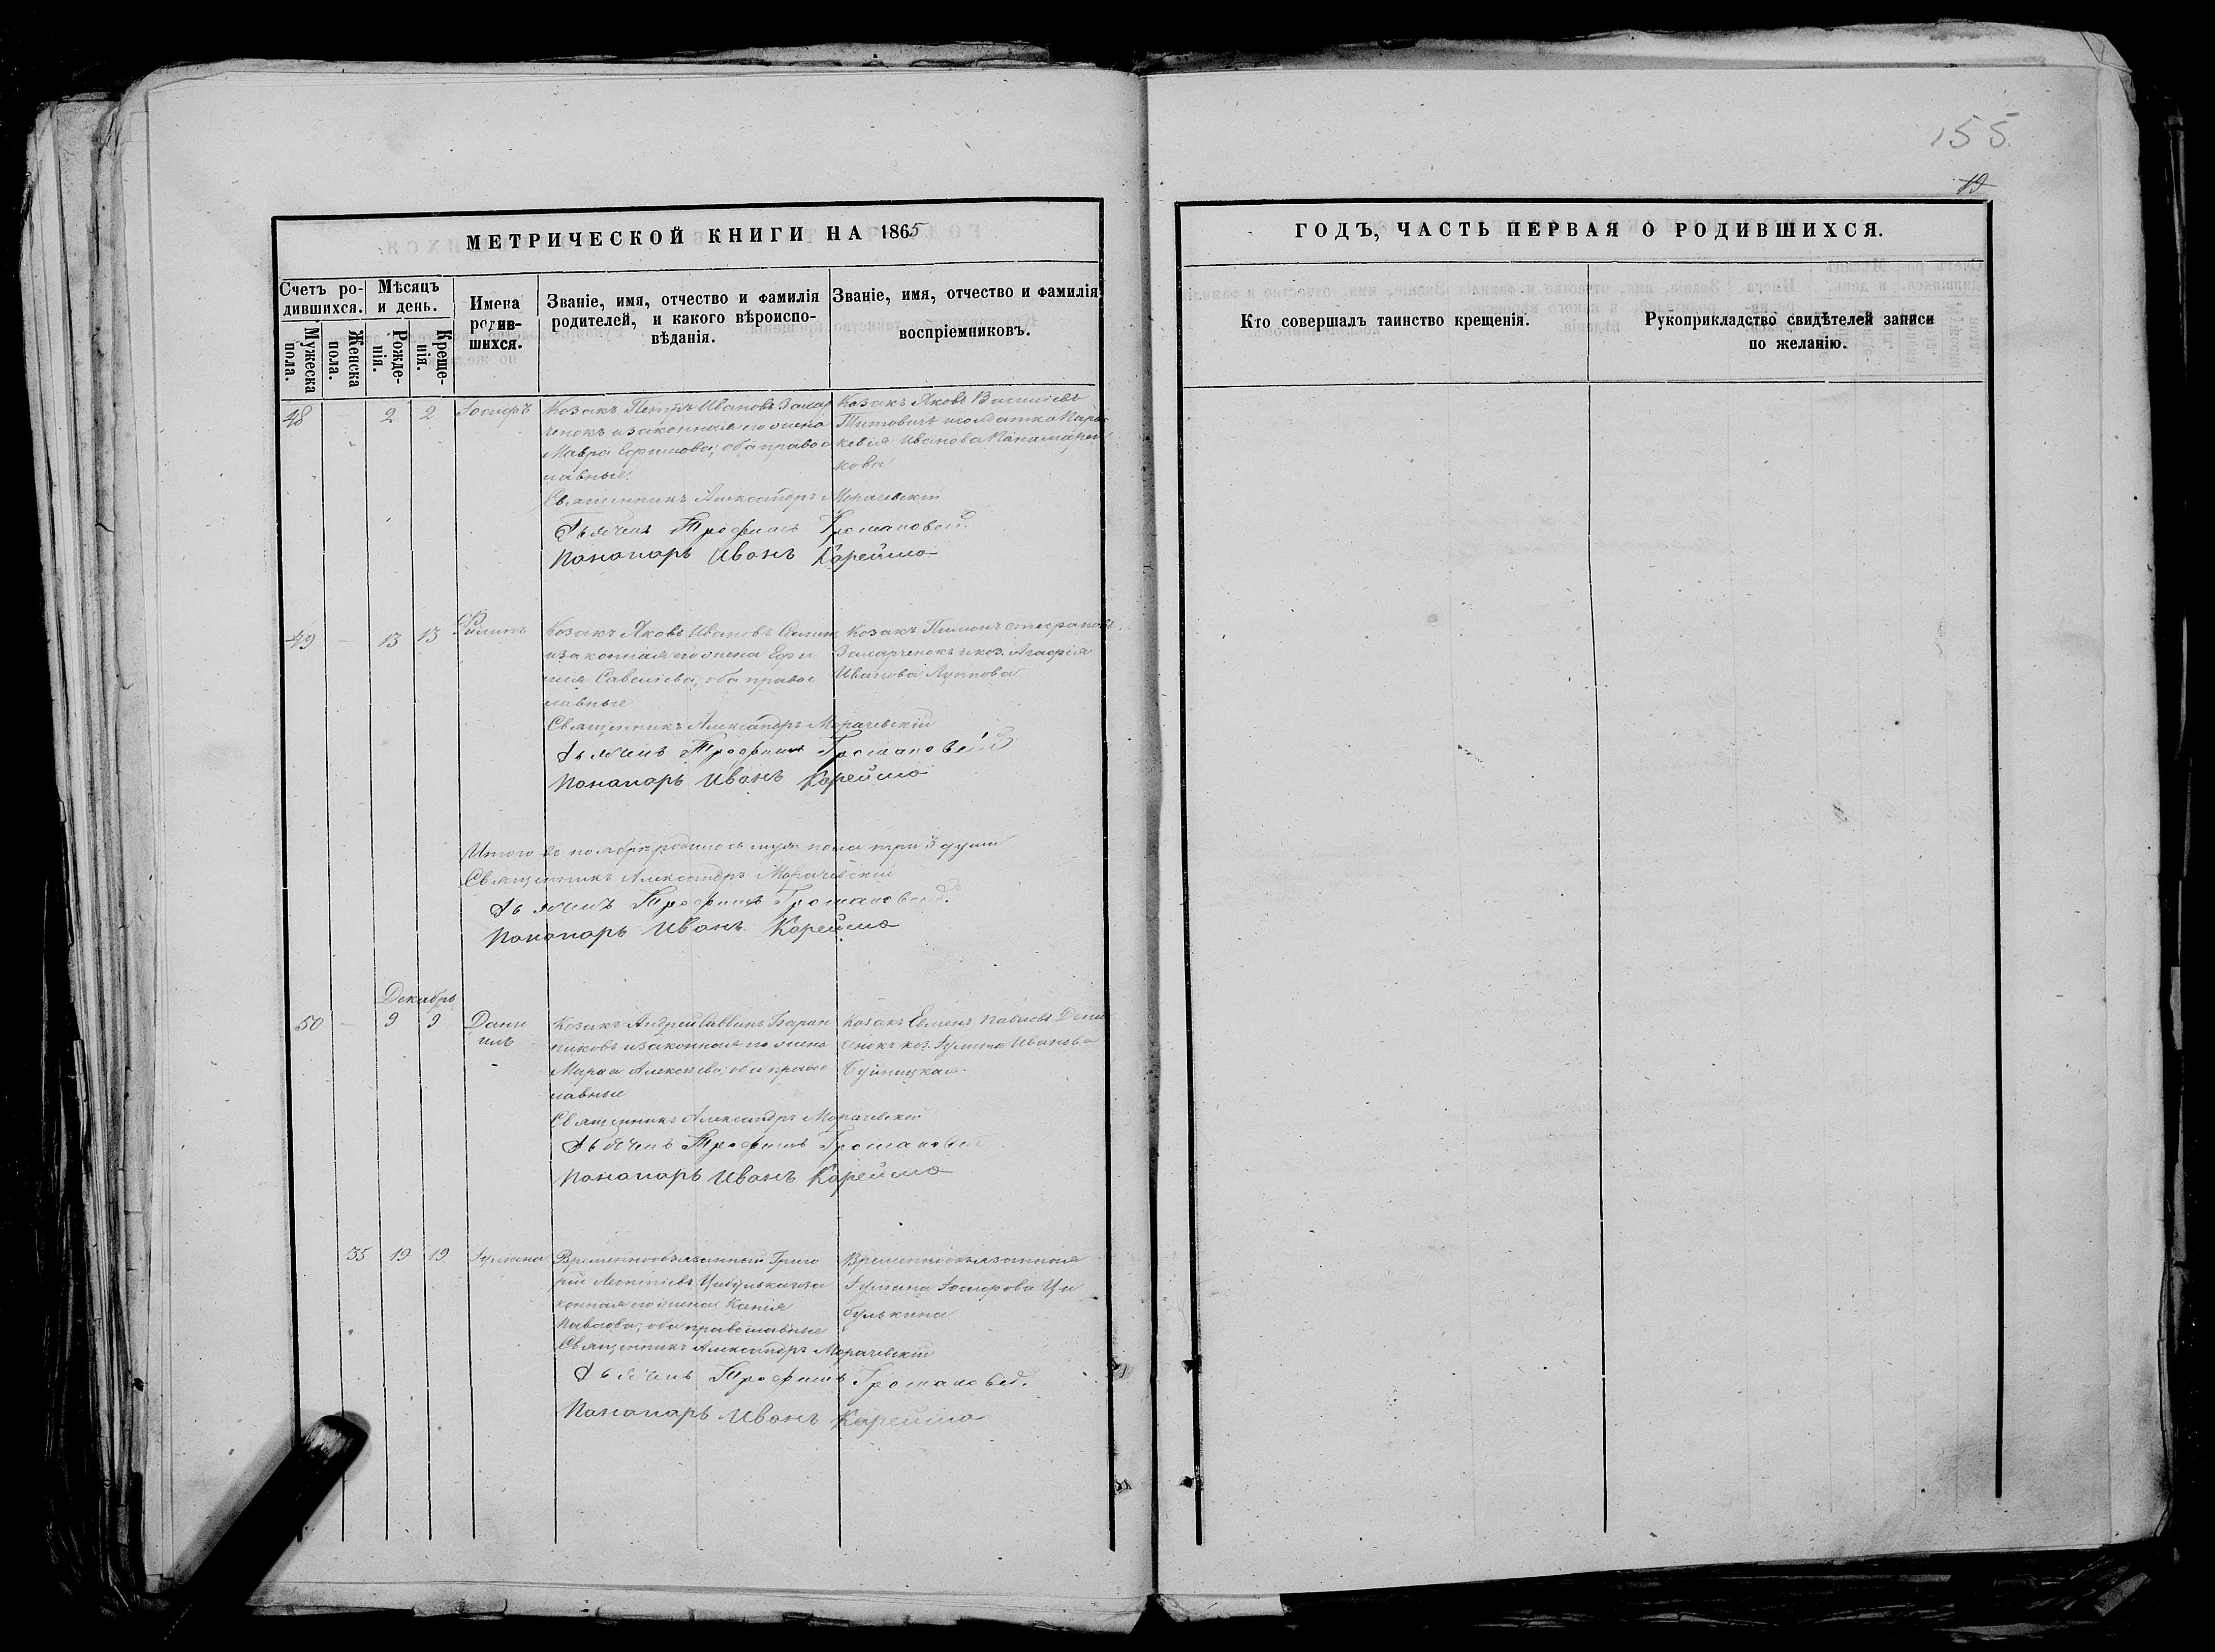 155
19
МЕТРИЧЕСКОЙ КНИГИ НА 1865
ГОДЪ, ЧАСТЬ ПЕРВАЯ О РОДИВШИХСЯ.
Счетъ ро-
дившихся.
Мужеска
пола.
Женска
пола.
Мѣсяцъ
и день.
Рожде-
нія.
Креще-
нія.
Имена
родив-
шихся.
Званіе, имя, отчество и фамилія
родителей, и какого вѣроиспо-
вѣданія.
Званіе, имя, отчество и фамилія
воспріемниковъ.
Кто совершалъ таинство крещенія.
Рукоприкладство свидѣтелей записи
по желанію.
48 2 2 Іосифъ
Козакъ Петръ Ивановъ Захар
ченокъ и законная его жена
Мавра Ефимова; оба правос
лавные.
Козакъ Яковъ Василіевъ
Титовичъ и солдатка Парас
кевія Иванова Панамарен
кова
Священникъ Александръ Морачевскій
Дьячекъ Трофимъ
Понамарь Иванъ Карейша
49 13 13 Филипъ
Козакъ Яковъ Ивановъ
и законная его жена Ефи
мія Савеліева; оба правос
лавные
Козакъ Пименъ Стефановъ
Захарченокъ и коз. Агафія
Иванова
Священникъ Александръ Морачевскій
Дьячекъ Трофимъ
Понамарь Иванъ Карейша
Итого въ ноябрѣ родилось муж. пола три 3 души
Священникъ Александръ Морачевскій
Дьячекъ Трофимъ
Понамарь Иванъ Карейша
Декабрь
50 9 9 Дани
илъ
Козакъ Андрей Саввинъ Баран
никовъ и законная его жена
Марѳа Алексѣева; оба правос
лавные
Козакъ Евменъ Павловъ
ченокъ коз. Іуліана Иванова
Буйницкая.
Священникъ Александръ Морачевскій
Дьячекъ Трофимъ
Понамарь Иванъ Карейша
35 19 19 Іуліана
Временнообязанный Григо
рій Леонтіевъ Цибулька и за
конная его жена Ксенія
Павлова; оба православные
Временнообязанная
Іуліана Іосифова Ци
булькина
Священникъ Александръ Морачевскій
Дьячекъ Трофимъ
Понамарь Иванъ Карейша